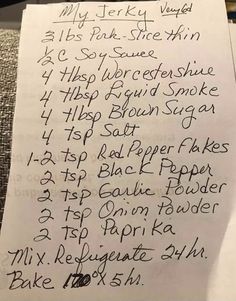 My Jerky Very Gd
3 lbs Pork - Slice thin
1/2 C Soy Sauce
4 Tbsp Worcestershire
4 Tbsp Liquid Smoke
4 Tbsp Brown Sugar
4 tsp Salt
1-2 tsp Red Pepper Flakes
2 tsp Black Pepper
2 tsp Garlic Powder
2 tsp Onion Powder
2 tsp Paprika
Mix. Refrigerate 24 hr.
Bake 170° x 5 hr.